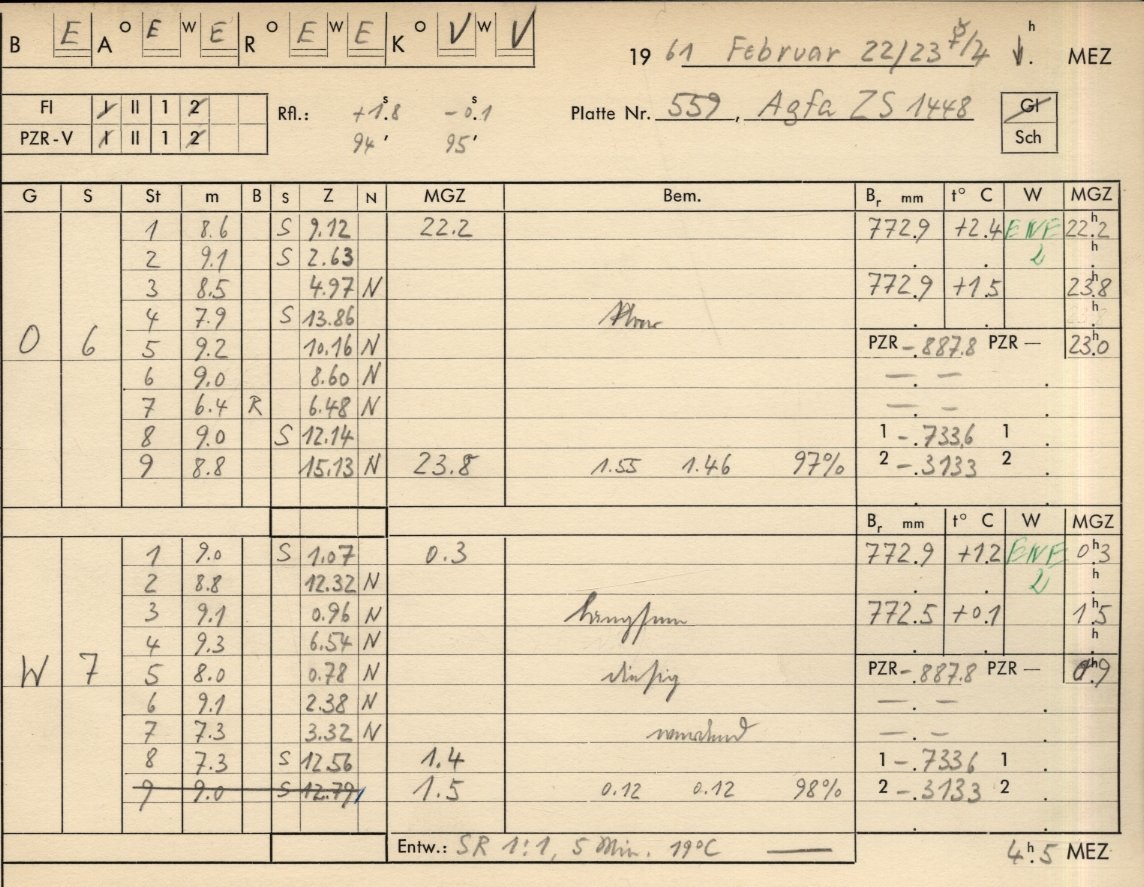 B E A O E W E R O E W E K O V W V
19 61 Februar 22/23 h MEZ
FI I II 1 2
PZR-V I II 1 2
Rfl.: +1.8 s -0.1 s
94' 95'
Platte Nr. 559, Agfa ZS 1448
Gl
Sch
G S St m B S Z N MGZ Bem. Br mm t° C W MGZ
1 8.6 S 9.12 22.2 772.9 +2.4 ENE 22.2 h
2 9.1 S 2.63 2 h
3 8.5 4.97 N 772.9 +1.5 23.8 h
4 7.9 S 13.86 h
O 6 5 9.2 10.16 N PZR -.887.8 PZR — 23.0 h
6 9.0 8.60 N — —
7 6.4 R 6.48 N — —
8 9.0 S 12.14 1 -.733.6 1
9 8.8 15.13 N 23.8 1.55 1.46 97% 2 -.3133 2
Br mm t° C W MGZ
1 9.0 S 1.07 0.3 772.9 +1.2 ENE 0.3 h
2 8.8 12.32 N 2 h
3 9.1 0.96 N 772.5 +0.1 1.5 h
4 9.3 6.54 N h
W 7 5 8.0 0.78 N diesig PZR -.887.8 PZR — 0.9 h
6 9.1 2.38 N — —
7 7.3 3.32 N — —
8 7.3 S 12.56 1.4 1 -.733.6 1
9 9.0 S 12.79 1.5 0.12 0.12 98% 2 -.3133 2
Entw.: SR 1:1, 5 Min. 19°C —
4.5 h MEZ